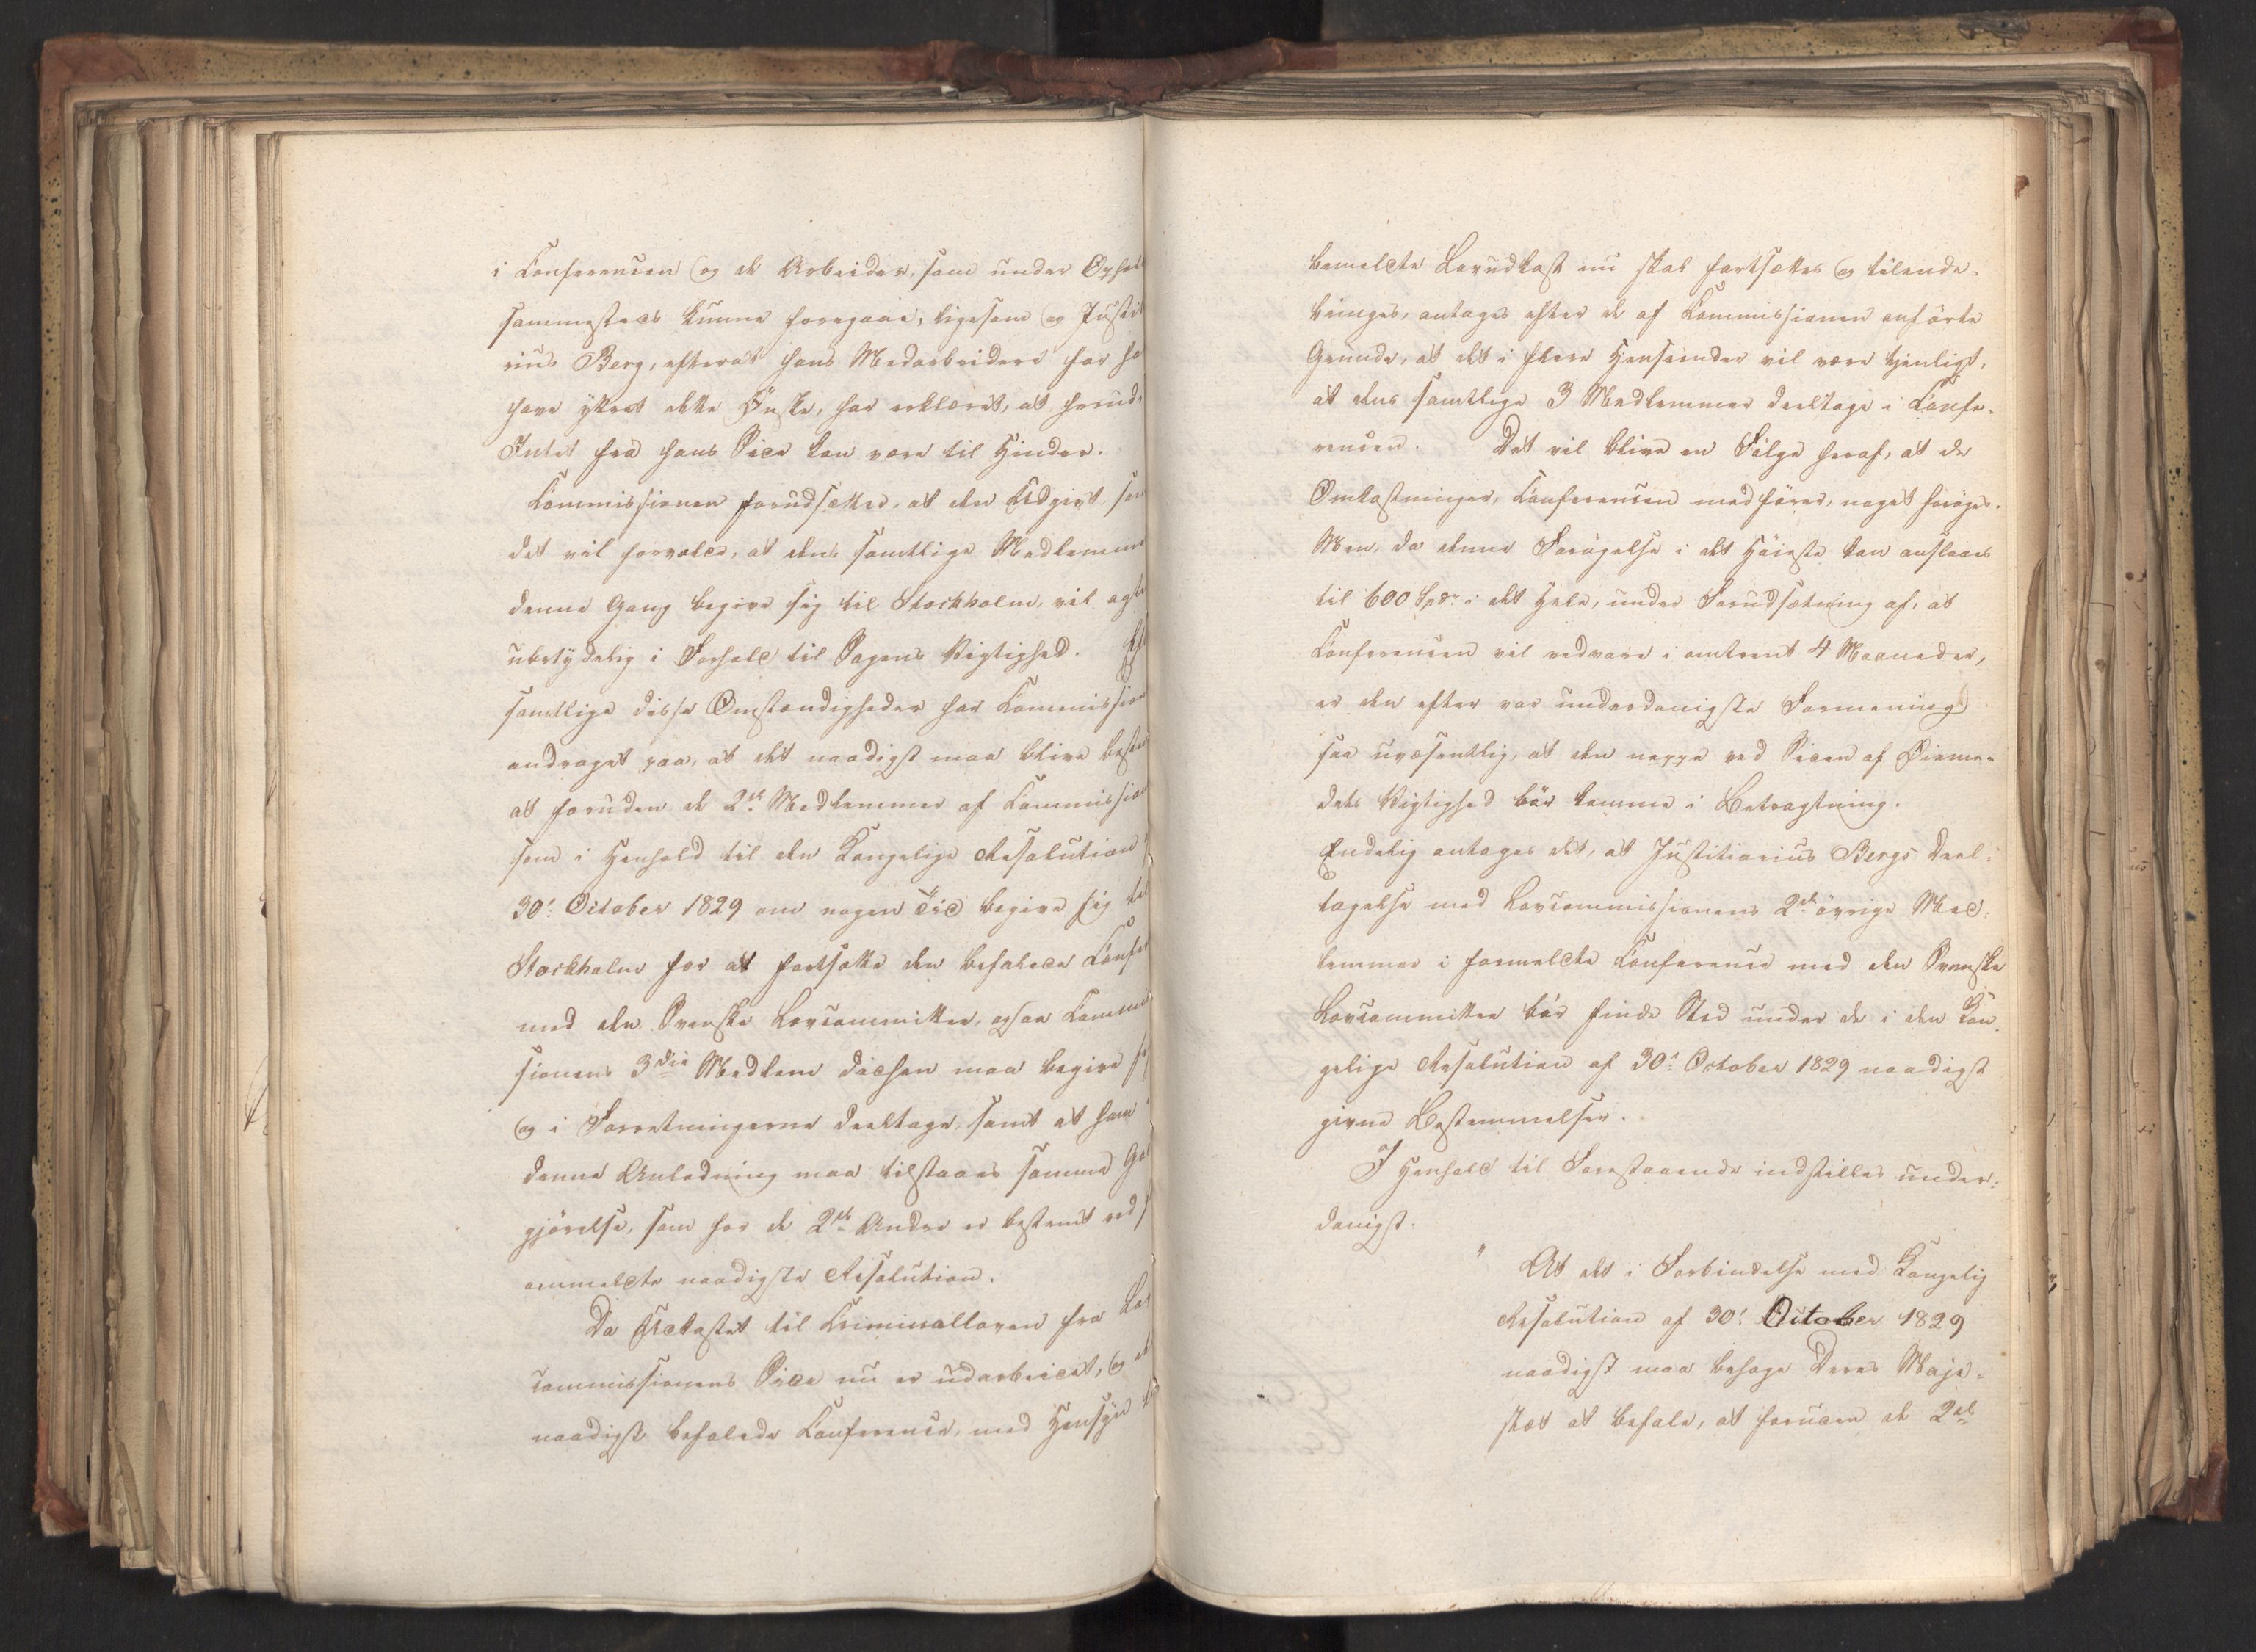 i Conferencen og de Arbeider, som under Ophol
sammesteds kunne foregaae, ligesom og Justit
rius Berg, efterat hans Medarbeidere har
have yttret dette Önske, har erklæret, at herud
Intet fra hans Side kan være til Hinder.
Commissionen forudsætter, at den Udgivt, som
det vil forvolde, at dens samtlige Medlemme
denne Gang begive sig til Stockholm, vil agte
ubetydelig i Forhold til Sagens Vigtighed. Eft
samtlige disse Omstændigheder har Commission
andraget paa, at det naadigst maa blive bestem
at foruden de 2de Medlemmer af Commission
som i Henhold til den Kongelige Resolution
30' October 1829 om nogen Tid begive sig til
Stockholm for at fortsætte den befalede Confe
med den Svenske Lovcommittee, ogsaa Commis
sionens 3die Medlem didhen maa begive sig
og i Forretningerne deeltage, samt at ham i
denne Anledning maa tilstaaes samme God
gjörelse, som for de 2de Andre er bestemt ved
ommeldte naadigste Resolution.
Da Udkastet til Criminalloven fra Lov
commissionens Side nu er udarbeidet, og den
naadigst befalede Conference, med Hensyn til
bemeldte Lovudkast nu skal fortsættes og tilende-
bringes, antages efter de af Commissionen anförte
Grunde, at det i flere Henseender vil være tjenligt,
at dens samtlige 3 Medlemmer deeltage i Confe-
rencen. Det vil blive en Fölge heraf, at de
Omkostninger, Conferencen medförer, noget foröges.
Men, da denne Forögelse i det Höieste kan anslaaes
til 600 Spdr i det Hele, under Forudsætning af, at
Conferencen vil vedvare i omtrent 4 Maaneder,
er den efter vor underdanigste Formening
saa uvæsentlig, at den neppe ved Siden af Öieme-
dets Vigtighed bör komme i Betragtning.
Endelig antages det, at Justitiarius Bergs Deel-
tagelse med Lovcommissionens 2de övrige Med-
lemmer i formeldte Conference med den Svenske
Lovcommittee bör finde Sted under de i den Kon-
gelige Resolution af 30' October 1829 naadigst
givne Bestemmelser.
I Henhold til Forestaaende indstilles under-
danigst:
" At det i Forbindelse med Kongelig
Resolution af 30' October 1829
naadigst maa behage Deres Maje-
stæt at befale, at foruden de 2de